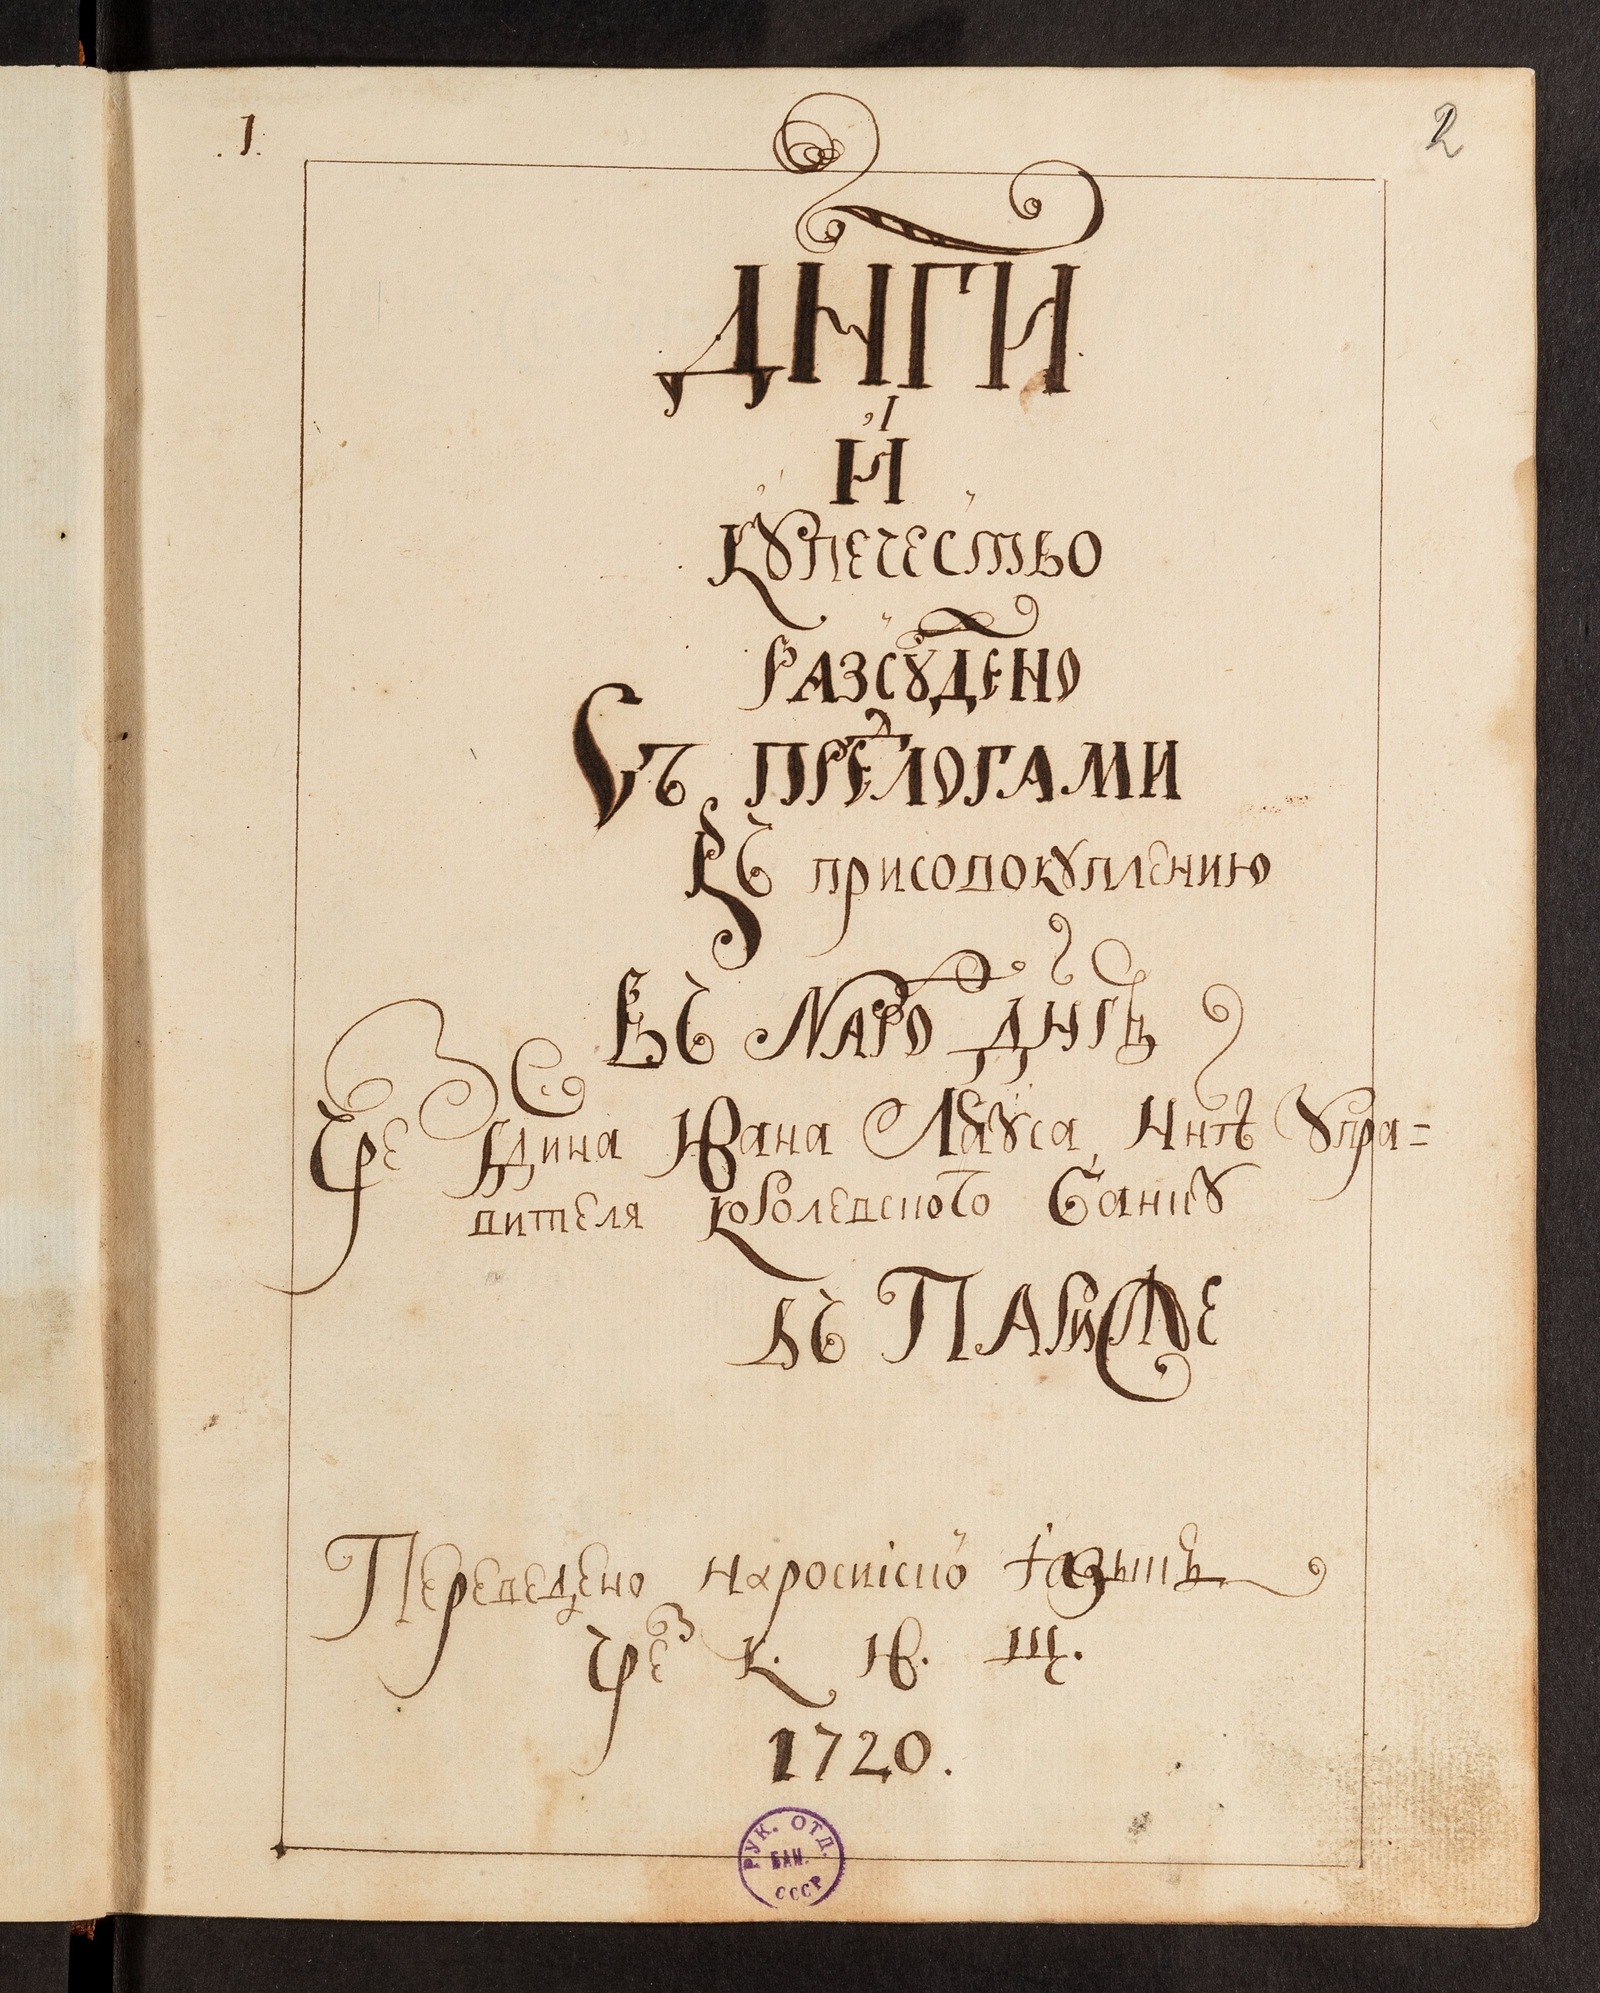 1.
2
ДНГИ
И
КУПЕЧЕСТВО
РАЗСУДЕНО
Съ ПРЕДЛОГАМИ
Къ присовокуплению
Въ НАРОДЕ ДНГЪ
Чрезъ гдина Ивана Лауса, Ннѣ Упра=
вителя королевского Банку
въ ПАРИЖЕ
Переведено наросиіскиӏ іазыкъ
Чрез К. Ив. Щ.
1720.
РУК. ОТД.
БАН.
СССР